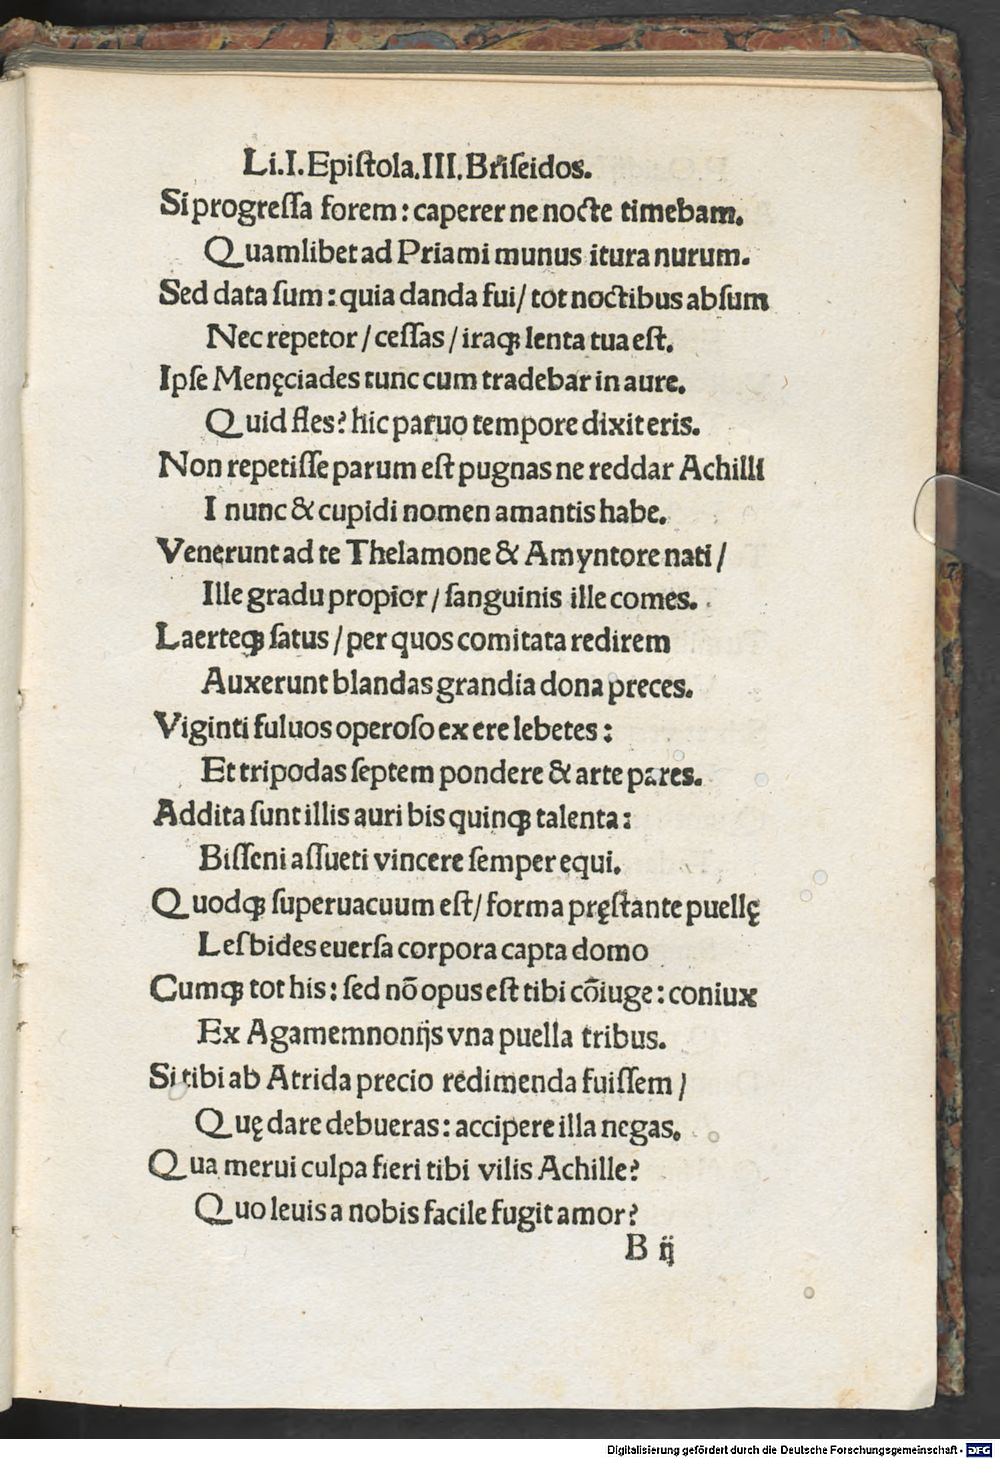 Li.I.Epiſtola.III.Briſeidos.
Si progreſſa forem: caperer ne nocte timebam.
Quamlibet ad Priami munus itura nurum.
Sed data ſum: quia danda fui/ tot noctibus abſum
Nec repetor / ceſſas / iraqꝫ lenta tua eſt.
Ipſe Menęciades tunc cum tradebar in aure.
Quid fles? hic paruo tempore dixit eris.
Non repetiſſe parum eſt pugnas ne reddar Achilli
I nunc & cupidi nomen amantis habe.
Venerunt ad te Thelamone & Amyntore nati /
Ille gradu propior / ſanguinis ille comes.
Laerteqꝫ ſatus / per quos comitata redirem
Auxerunt blandas grandia dona preces.
Viginti fuluos operoſo ex ere lebetes:
Et tripodas ſeptem pondere & arte pares.
Addita ſunt illis auri bis quinqꝫ talenta:
Biſſeni aſſueti vincere ſemper equi.
Quodqꝫ ſuperuacuum eſt/ forma pręſtante puellę
Leſbides euerſa corpora capta domo
Cumqꝫ tot his: ſed nō opus eſt tibi cōiuge: coniux
Ex Agamemnonijs vna puella tribus.
Si tibi ab Atrida precio redimenda fuiſſem /
Quę dare debueras: accipere illa negas.
Qua merui culpa fieri tibi vilis Achille?
Quo leuis a nobis facile fugit amor?
B ij
Digitalisierung gefördert durch die Deutsche Forschungsgemeinschaft - DFG